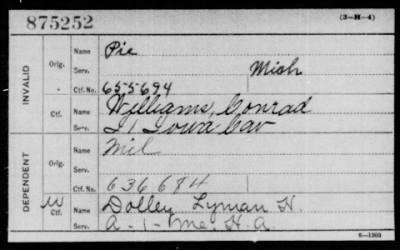 875252
(3-H-4)
INVALID
Orig.
Name
Pie
Serv.
Mich
Ctf. No.
655694
Ctf.
Name
Williams, Conrad
Serv.
I 1 Iowa Cav
DEPENDENT
Orig.
Name
Mil
Serv.
Ctf. No.
636684
M
Ctf.
Name
Dolley Lyman H.
Serv.
A. 1 - Me. H. A.
6—1303